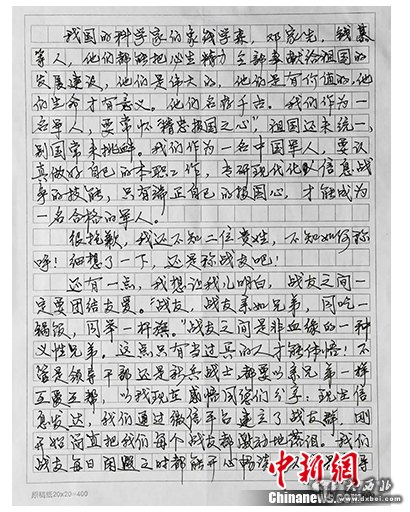 我国的科学家们象钱学森，邓家先，钱基
等人，他们都能把心生精力全部奉献给祖国的
发展建设，他们是伟大的，他们是有价值的，他
们的生命才有意义。他们名扬千古。我们作为一
名军人，要常怀“精忠报国之心”，祖国还未统一，
别国常来挑衅。我们作为一名中国军人，要认
真做好自己的本职工作，专研现代化队信息战
争的技能，只有端正自己的报国心，才能成为
一名合格的军人。
很抱歉，我还不知二位贵姓，不知如何称
呼！细想了一下，还是称战友吧！
还有一点，我想让我儿明白，战友之间一
定要团结友爱。“战友，战友亲如兄弟，同吃一
锅饭，同举一杆旗。”战友之间是非血缘的一种
义性兄弟。这点只有当过兵的人才能体悟！不
管是领导干部还是新兵战士都要以亲兄弟一样
互爱互帮，以我现在
息发达，我们通过微信平台建立了战友群，刚
开始间真把我们每个战友都激动地落泪。我们
战友每日闲暇之时都能开心畅谈
原稿纸20×20=400
中新网
Chinanews.com